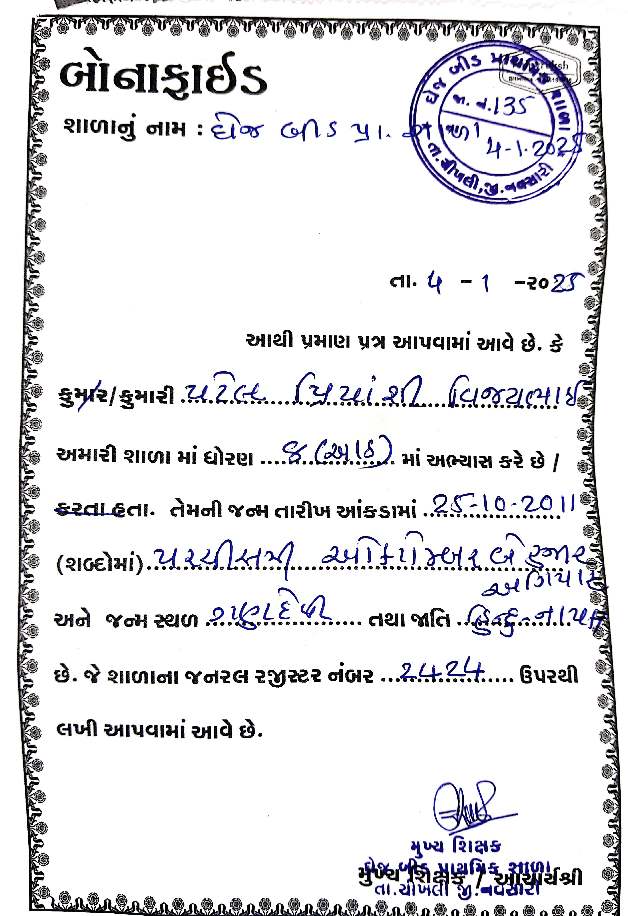 બોનાફાઇડ
શાળાનું નામ : ઘેજ બીડ પ્રા. શાળા
ઘેજ બીડ પ્રાથમિક શાળા
જા. નં. 135
4-1-2025
તા. ચીખલી, જી. નવસારી
તા. 4 - 1 -૨૦25
આથી પ્રમાણ પત્ર આપવામાં આવે છે. કે
કુમાર/કુમારી પટેલ પ્રિયાંશી વિજયભાઈ
અમારી શાળા માં ધોરણ ૮ (આઠ) માં અભ્યાસ કરે છે /
કરતા હતા. તેમની જન્મ તારીખ આંકડામાં 25-10-2011
(શબ્દોમાં) પચ્ચીસમી ઓક્ટોમ્બર બે હજાર
અગિયાર
અને જન્મ સ્થળ ગણદેવી તથા જાતિ હિન્દુ-નાયકા
છે. જે શાળાના જનરલ રજીસ્ટર નંબર 2424 ઉપરથી
લખી આપવામાં આવે છે.
મુખ્ય શિક્ષક
ઘેજ બીડ પ્રાથમિક શાળા
મુખ્ય શિક્ષક / આચાર્યશ્રી
તા.ચીખલી જી.નવસારી